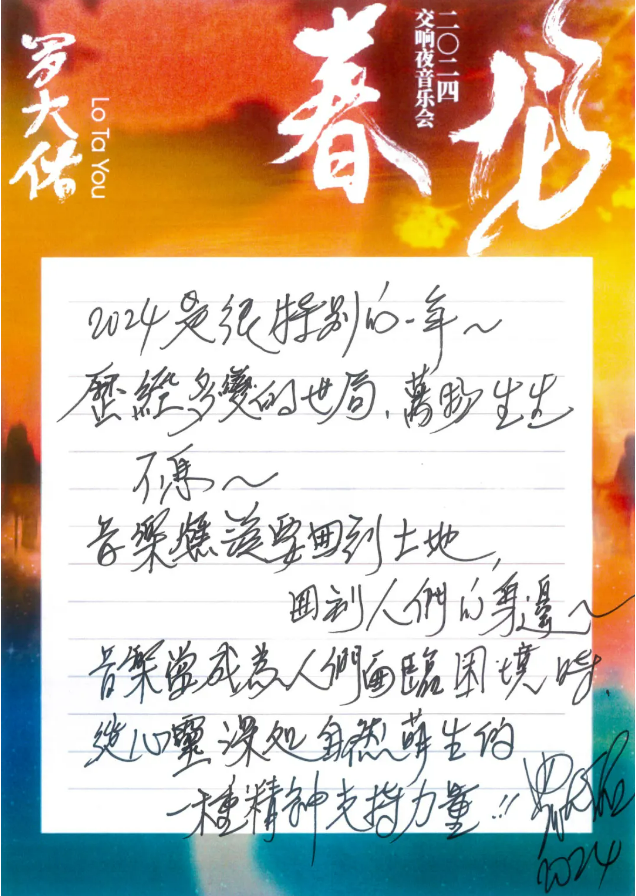 罗大佑
Lo Ta You
春
二〇二四
交响夜音乐会
2024是很特別的一年~
歷經多變的世局、萬物生生
不息~
音樂應該要回到土地,
回到人們的身邊~
音樂當成為人們面臨困境時,
從心靈深处自然萌生的
一種精神支持力量!!
2024